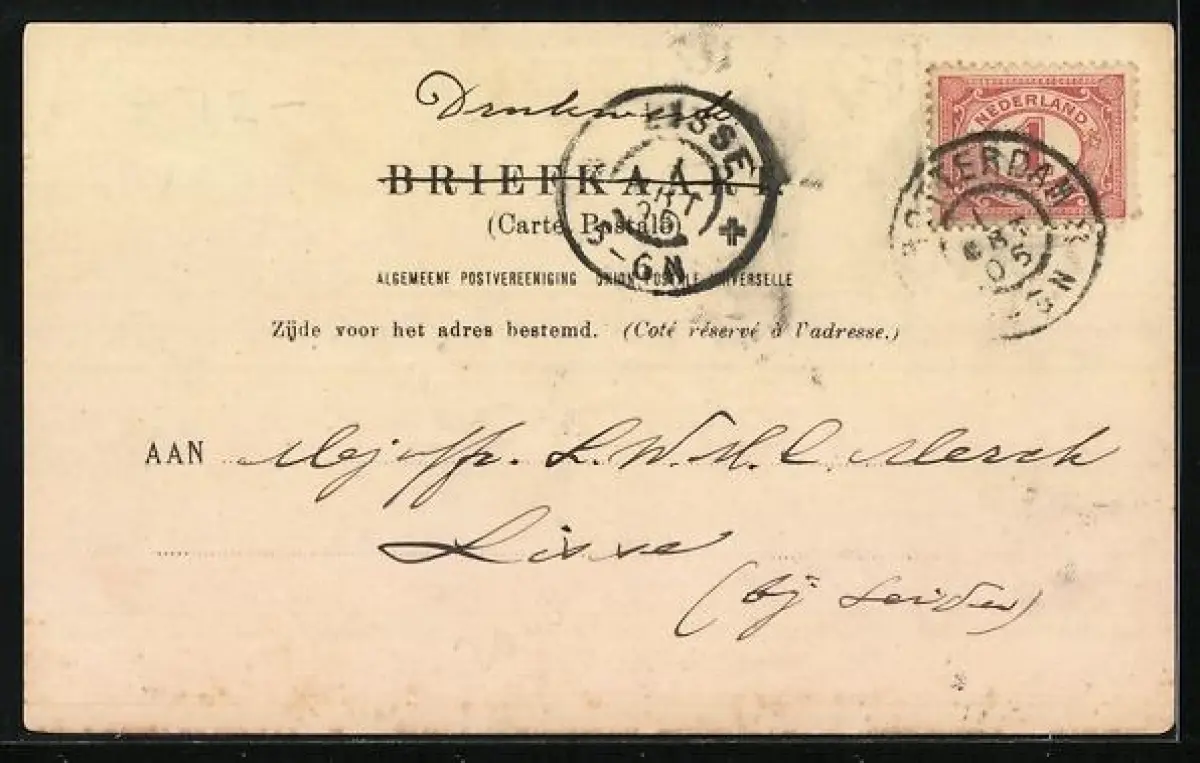 Drukwerk
NEDERLAND
1
BRIEFKAART
LISSE
5-6N
(Carte Postale)
ROTTERDAM
05
ALGEMEENE POSTVEREENIGING UNION POSTALE UNIVERSELLE
Zijde voor het adres bestemd. (Coté réservé à l'adresse.)
AAN Mejuffr. L.W.H.C. Mersch
Lisse
(bij Leiden)